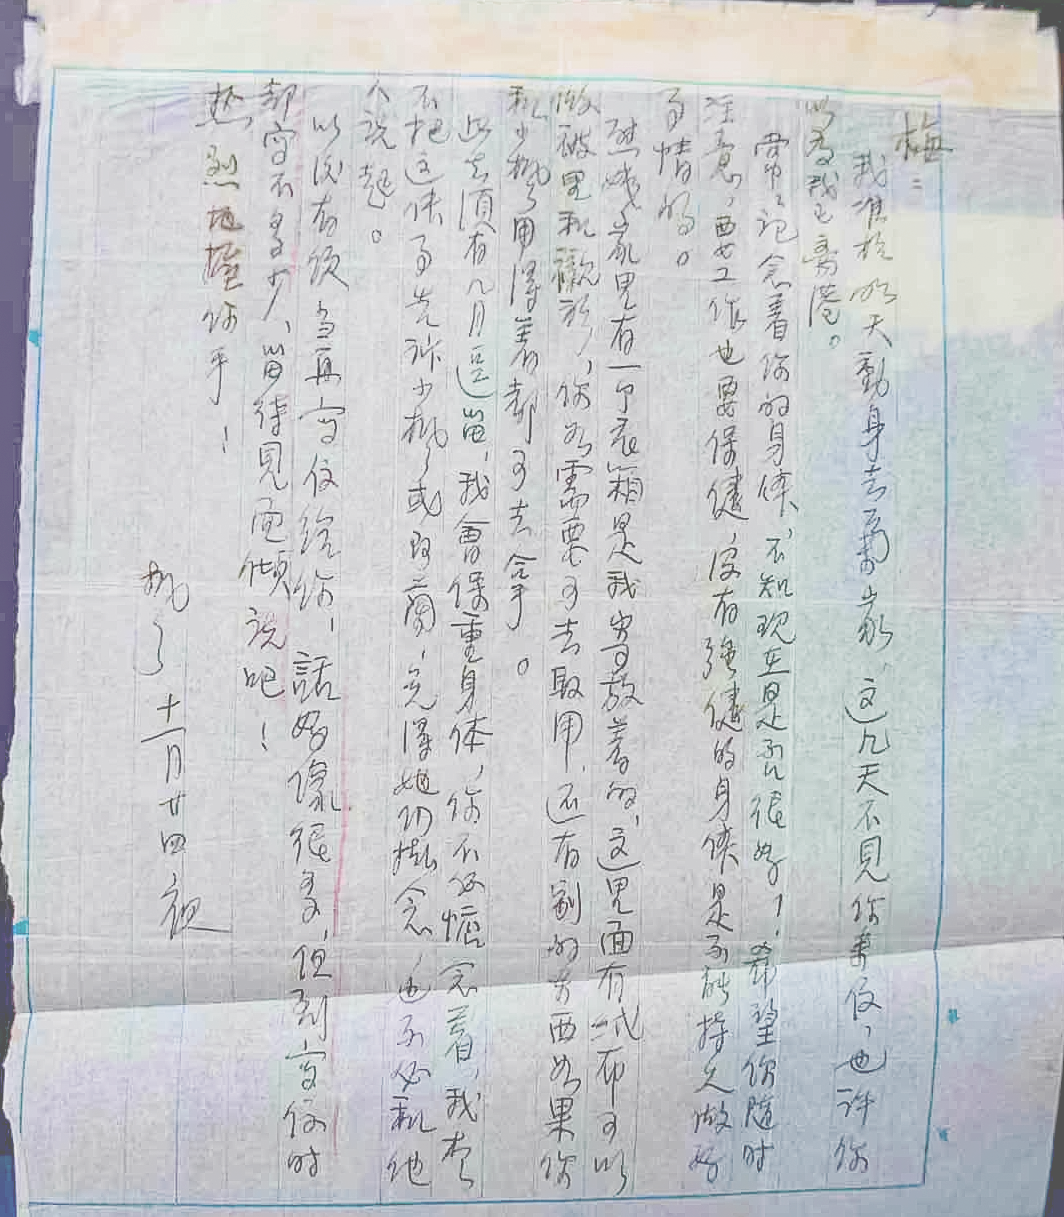 梅：
我准於明天動身去南京。这几天不見你来信，也許你
以為我已离港。
常常記念着你的身体，不知現在是否很好！希望你隨时
注意，要工作也要保健，没有強健的身体是不能持久做好
事情的。
家里有一个衣箱是我寄放着的，这里面有絨布可以
做被里和襯衫，你如需要可去取用，还有别的东西如果你
和少梅用得着都可去拿。
此去須有几月逗留，我會保重身体，你不必惦念着，我本
不把这件事告訴少梅或阿蘭，免得她们掛念，也不必和他
人説起。
以後有須当再寫信給你，話好像很多，但到寫信时
却寫不多少，留待見面傾談吧！
热烈地握你手！
十一月廿四夜